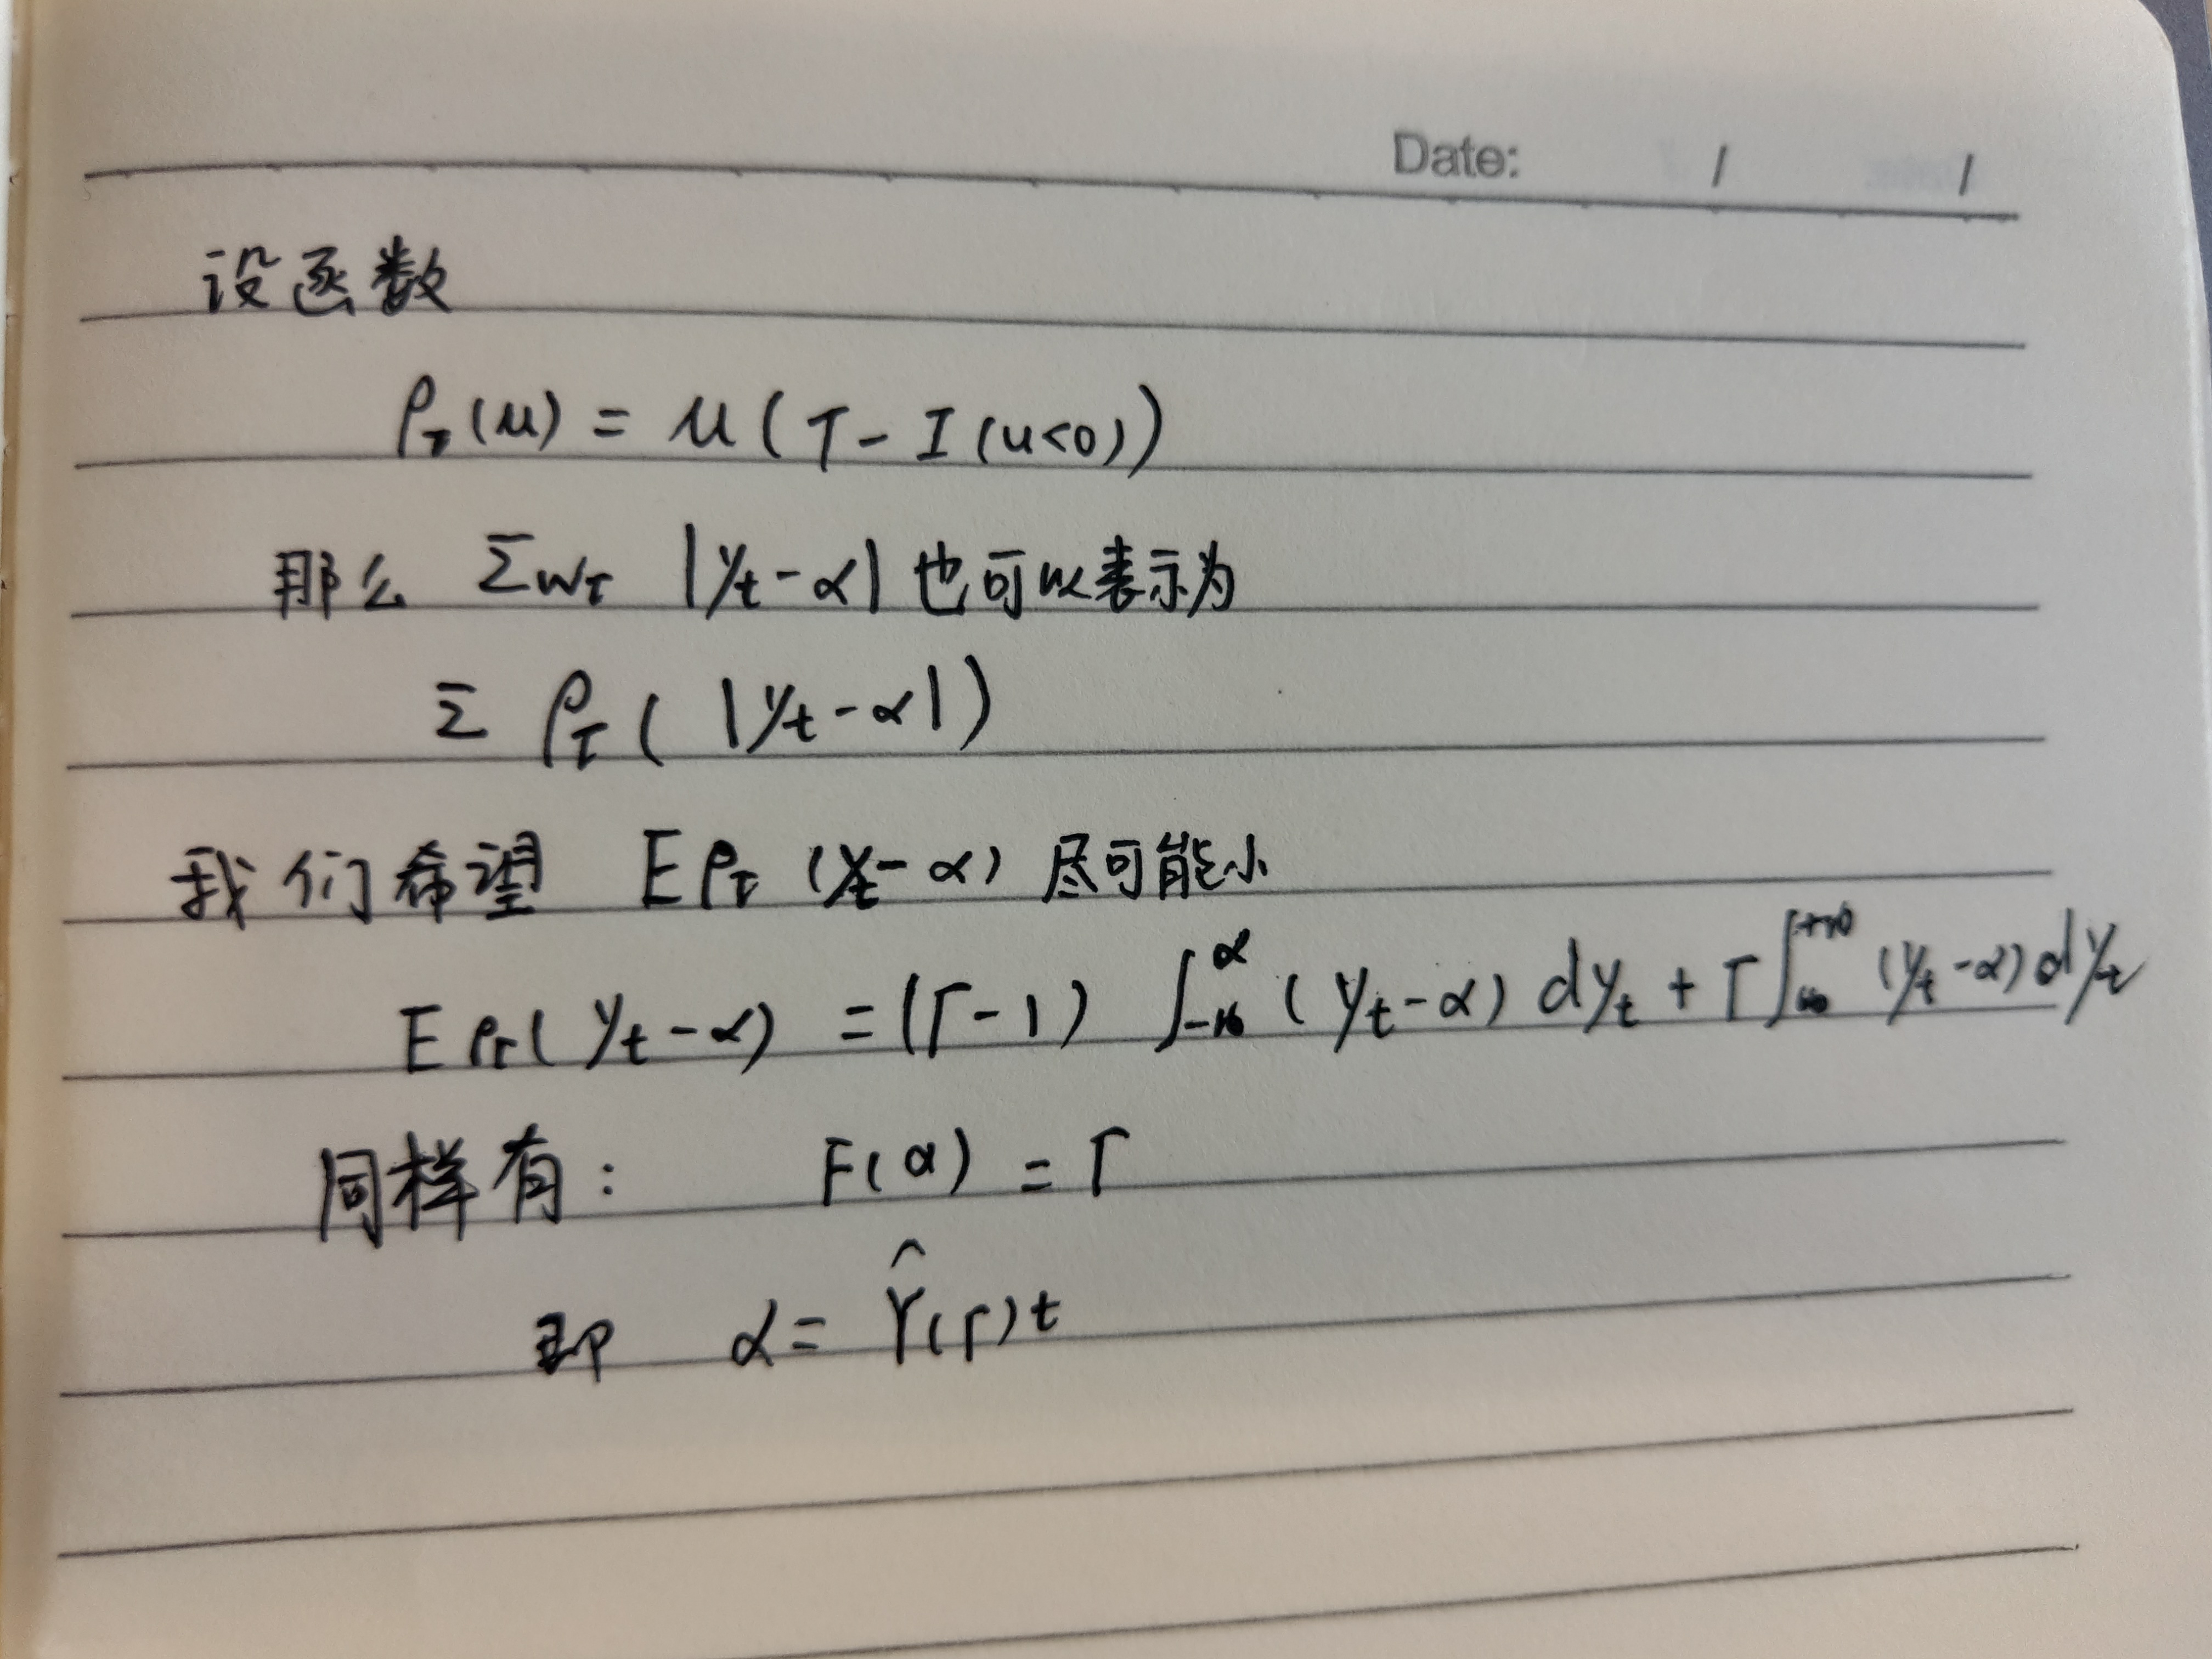 Date: / /
设函数
ρ_τ(u) = u(τ - I(u<0))
那么 Σw_τ |y_t-α| 也可以表示为
Σ ρ_τ(|y_t-α|)
我们希望 Eρ_τ(y_t-α) 尽可能小
Eρ_τ(y_t-α) = (τ-1) ∫_{-∞}^{α} (y_t-α) dy_t + τ∫^{+∞} (y_t-α)dy_t
同样有: F(α) = τ
即 α = Ŷ(τ)t